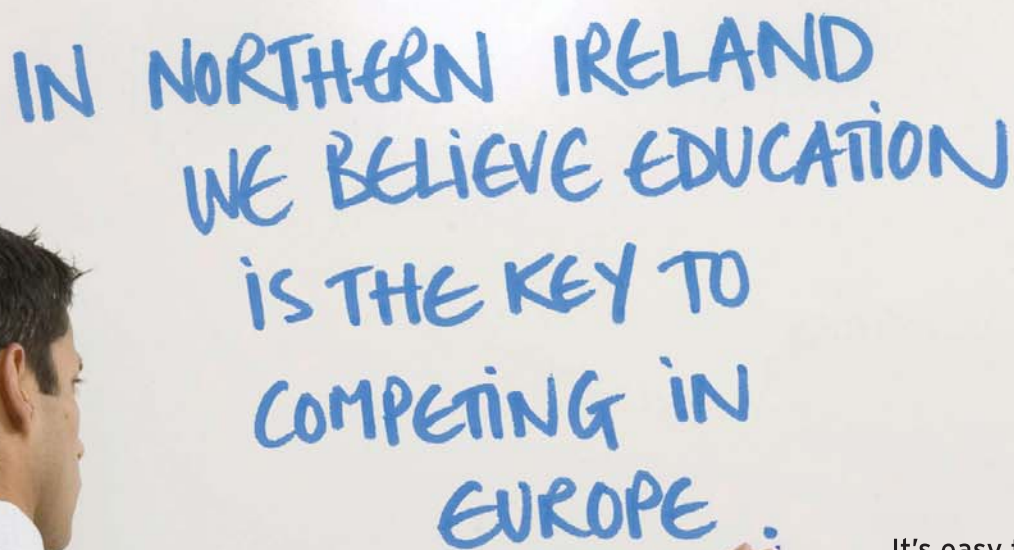 IN NORTHERN IRELAND
WE BELIEVE EDUCATION
IS THE KEY TO
COMPETING IN
EUROPE.
It's easy